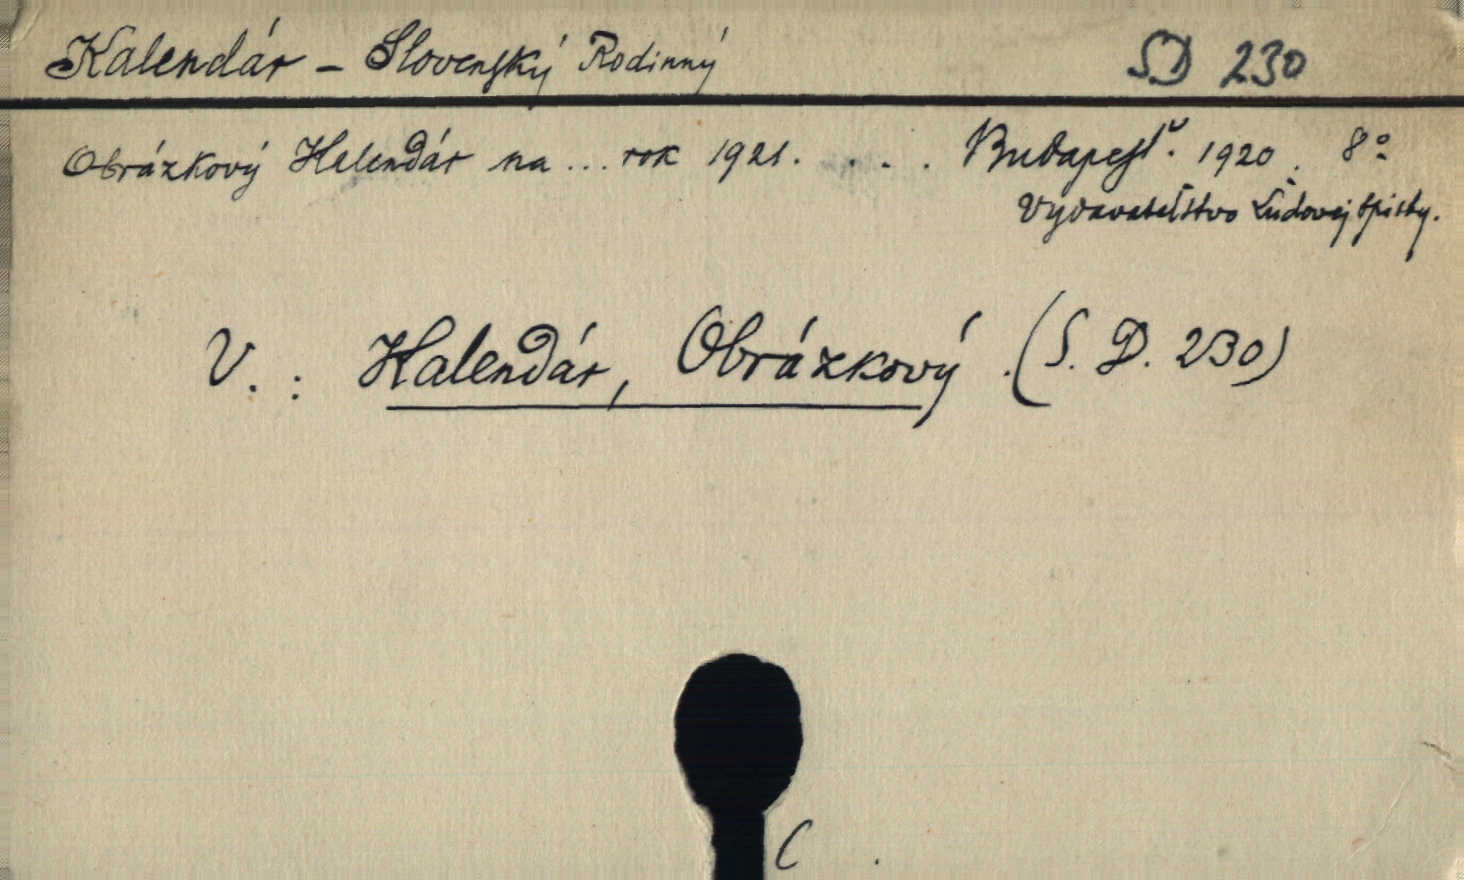 Kalendár - Slovenský Rodinný SD 230
Obrázkový Kalendár na ... rok 1921. . . . Budapešť. 1920. 8°
Vydavateľstvo Ľudovej Spisby.
V. : Kalendár, Obrázkový. (S. D. 230)
C .